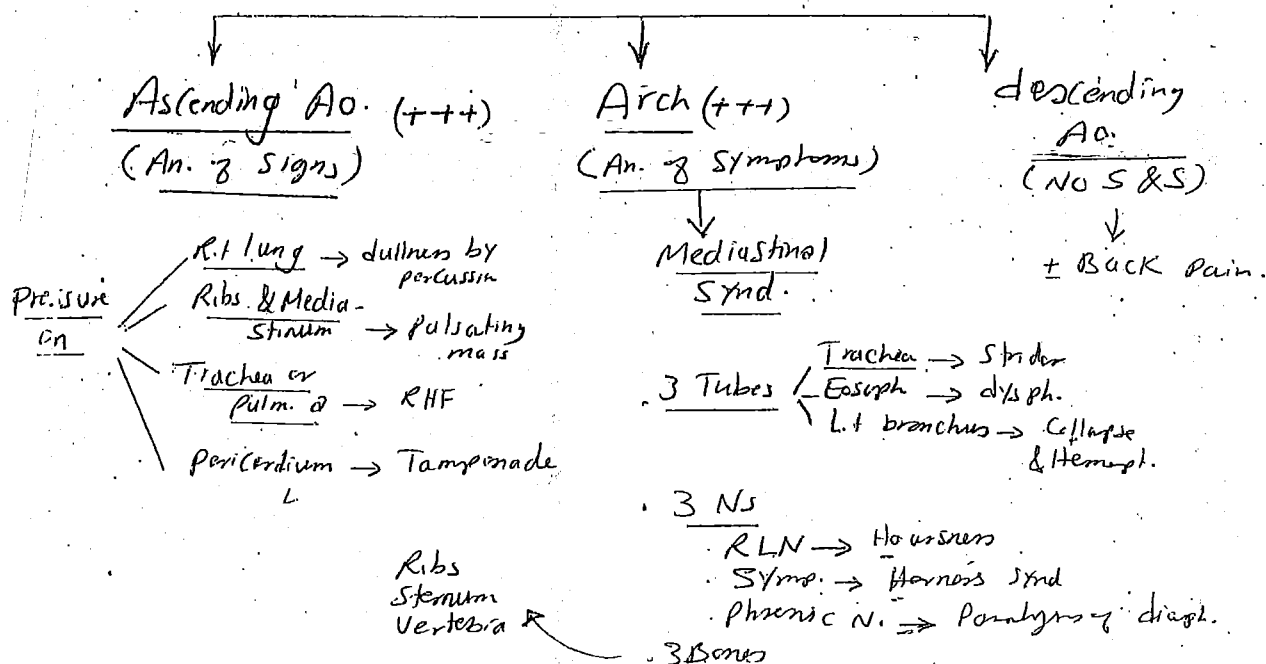 Ascending Ao. (+++)
(An. of Signs)
Pressure
on
Rt lung → dullness by
percussin
Ribs & Media-
stinum → Pulsating
mass
Trachea or
Pulm. a → RHF
Pericardium → Tamponade
Arch (+++)
(An. of Symptoms)
Mediastinal
Synd.
3 Tubes
Trachea → Stridor
Eosoph → dysph.
Lt bronchus → Collapse
& Hemopt.
3 Ns
RLN → Hoarsness
Symp. → Horners Synd
Phrenic N. → Paralysis of diaph.
3 Bones
Ribs
Sternum
Vertebra
descending
Ao.
(No S & S)
± Back Pain.